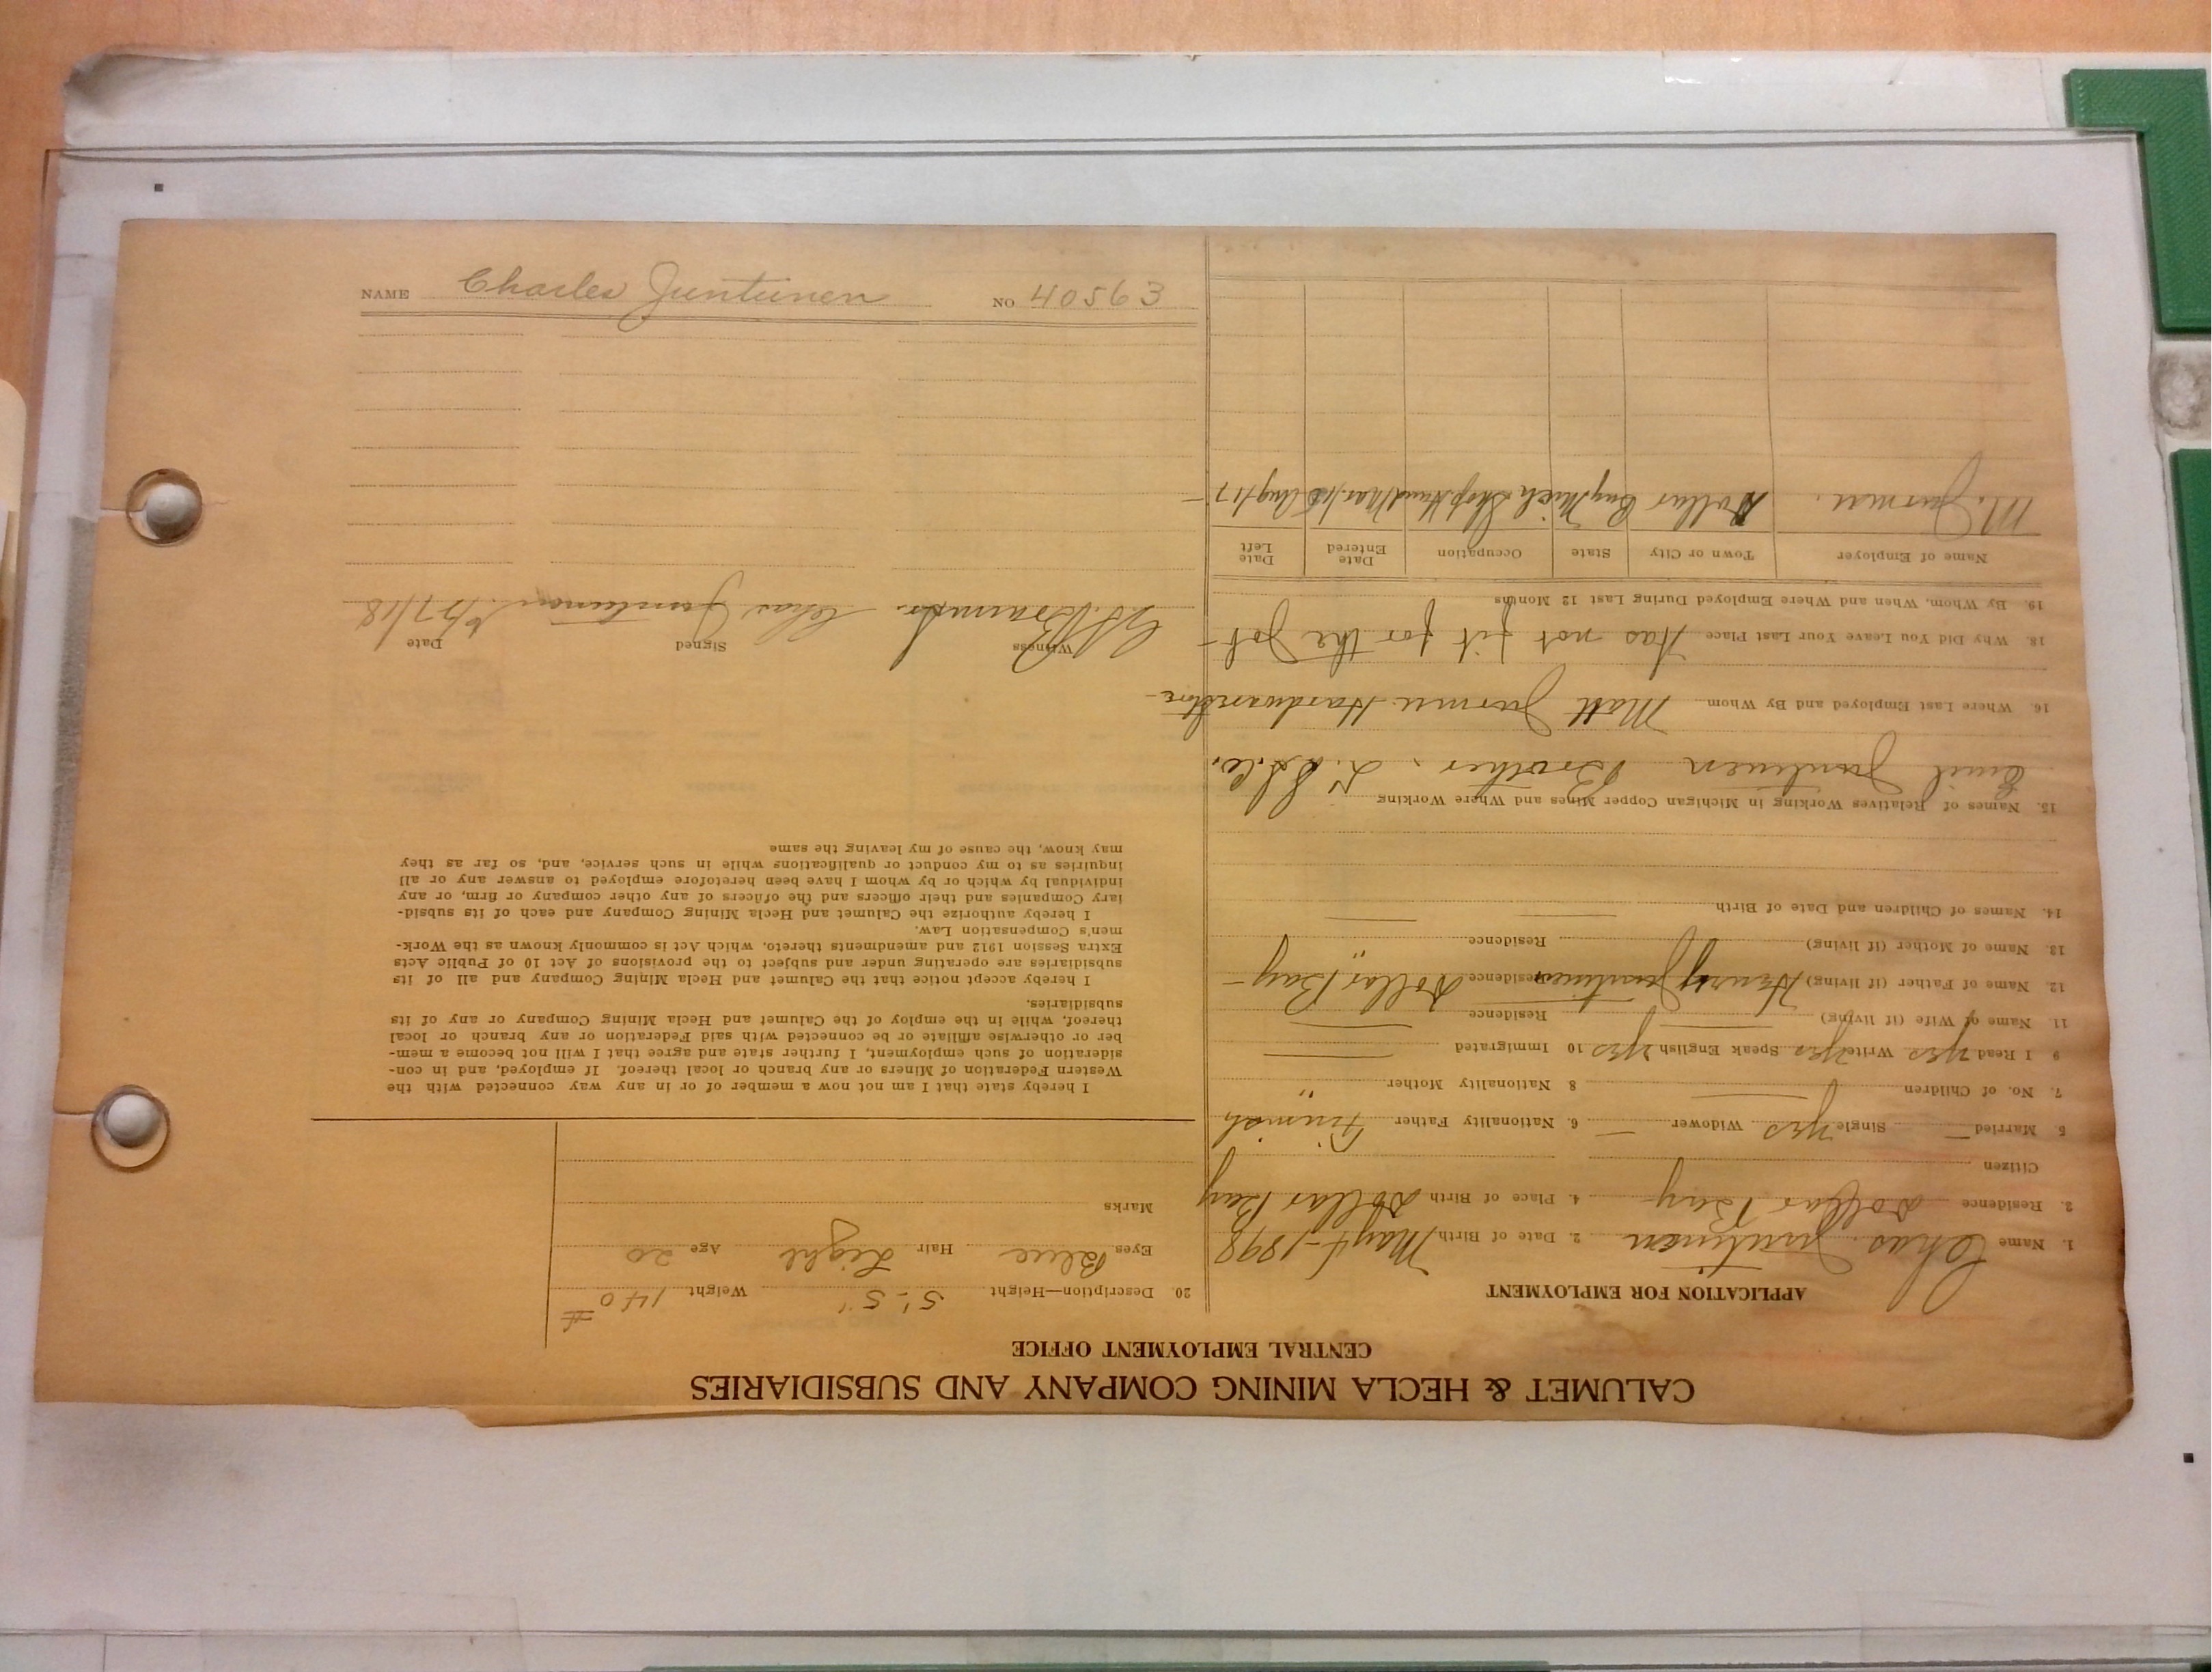 CALUMET & HECLA MINING COMPANY AND SUBSIDIARIES
CENTRAL EMPLOYMENT OFFICE
APPLICATION FOR EMPLOYMENT
1. Name Chas. Juntunen 2. Date of Birth May 1898
2. Residence Dollar Bay 4. Place of Birth Dollar Bay
Citizen
5. Married — Single yes Widower — 6. Nationality Father Finnish
7. No. of Children 8 Nationality Mother "
9 I Read yes Write yes Speak English yes 10 Immigrated
11. Name of Wife (if living) Residence
12. Name of Father (if living) Henry Juntunen Residence Dollar Bay
13. Name of Mother (if living) Residence "
14. Names of Children and Date of Birth
15. Names of Relatives Working in Michigan Copper Mines and Where Working
Emil Juntunen Brother.
16. Where Last Employed and By Whom Matt Hardware Store
18. Why Did You Leave Your Last Place Was not fit for the Job
19. By Whom, When and Where Employed During Last 12 Months
Name of Employer Town or City State Occupation Date Entered Date Left
M. Dollar Bay Mich. Shop Aug/17
20. Description—Height 5'-5" Weight 140#
Eyes Blue Hair Light Age 20
Marks
I hereby state that I am not now a member of or in any way connected with the
Western Federation of Miners or any branch or local thereof. If employed, and in con-
sideration of such employment, I further state and agree that I will not become a mem-
ber or otherwise affiliate or be connected with said Federation or any branch or local
thereof, while in the employ of the Calumet and Hecla Mining Company or any of its
subsidiaries.
I hereby accept notice that the Calumet and Hecla Mining Company and all of its
subsidiaries are operating under and subject to the provisions of Act 10 of Public Acts
Extra Session 1912 and amendments thereto, which Act is commonly known as the Work-
men's Compensation Law.
I hereby authorize the Calumet and Hecla Mining Company and each of its subsid-
iary Companies and their officers and the officers of any other company or firm, or any
individual by which or by whom I have been heretofore employed to answer any or all
inquiries as to my conduct or qualifications while in such service, and, so far as they
may know, the cause of my leaving the same
Witness Signed Date
Chas Juntunen
NAME Charles Juntunen NO 40563